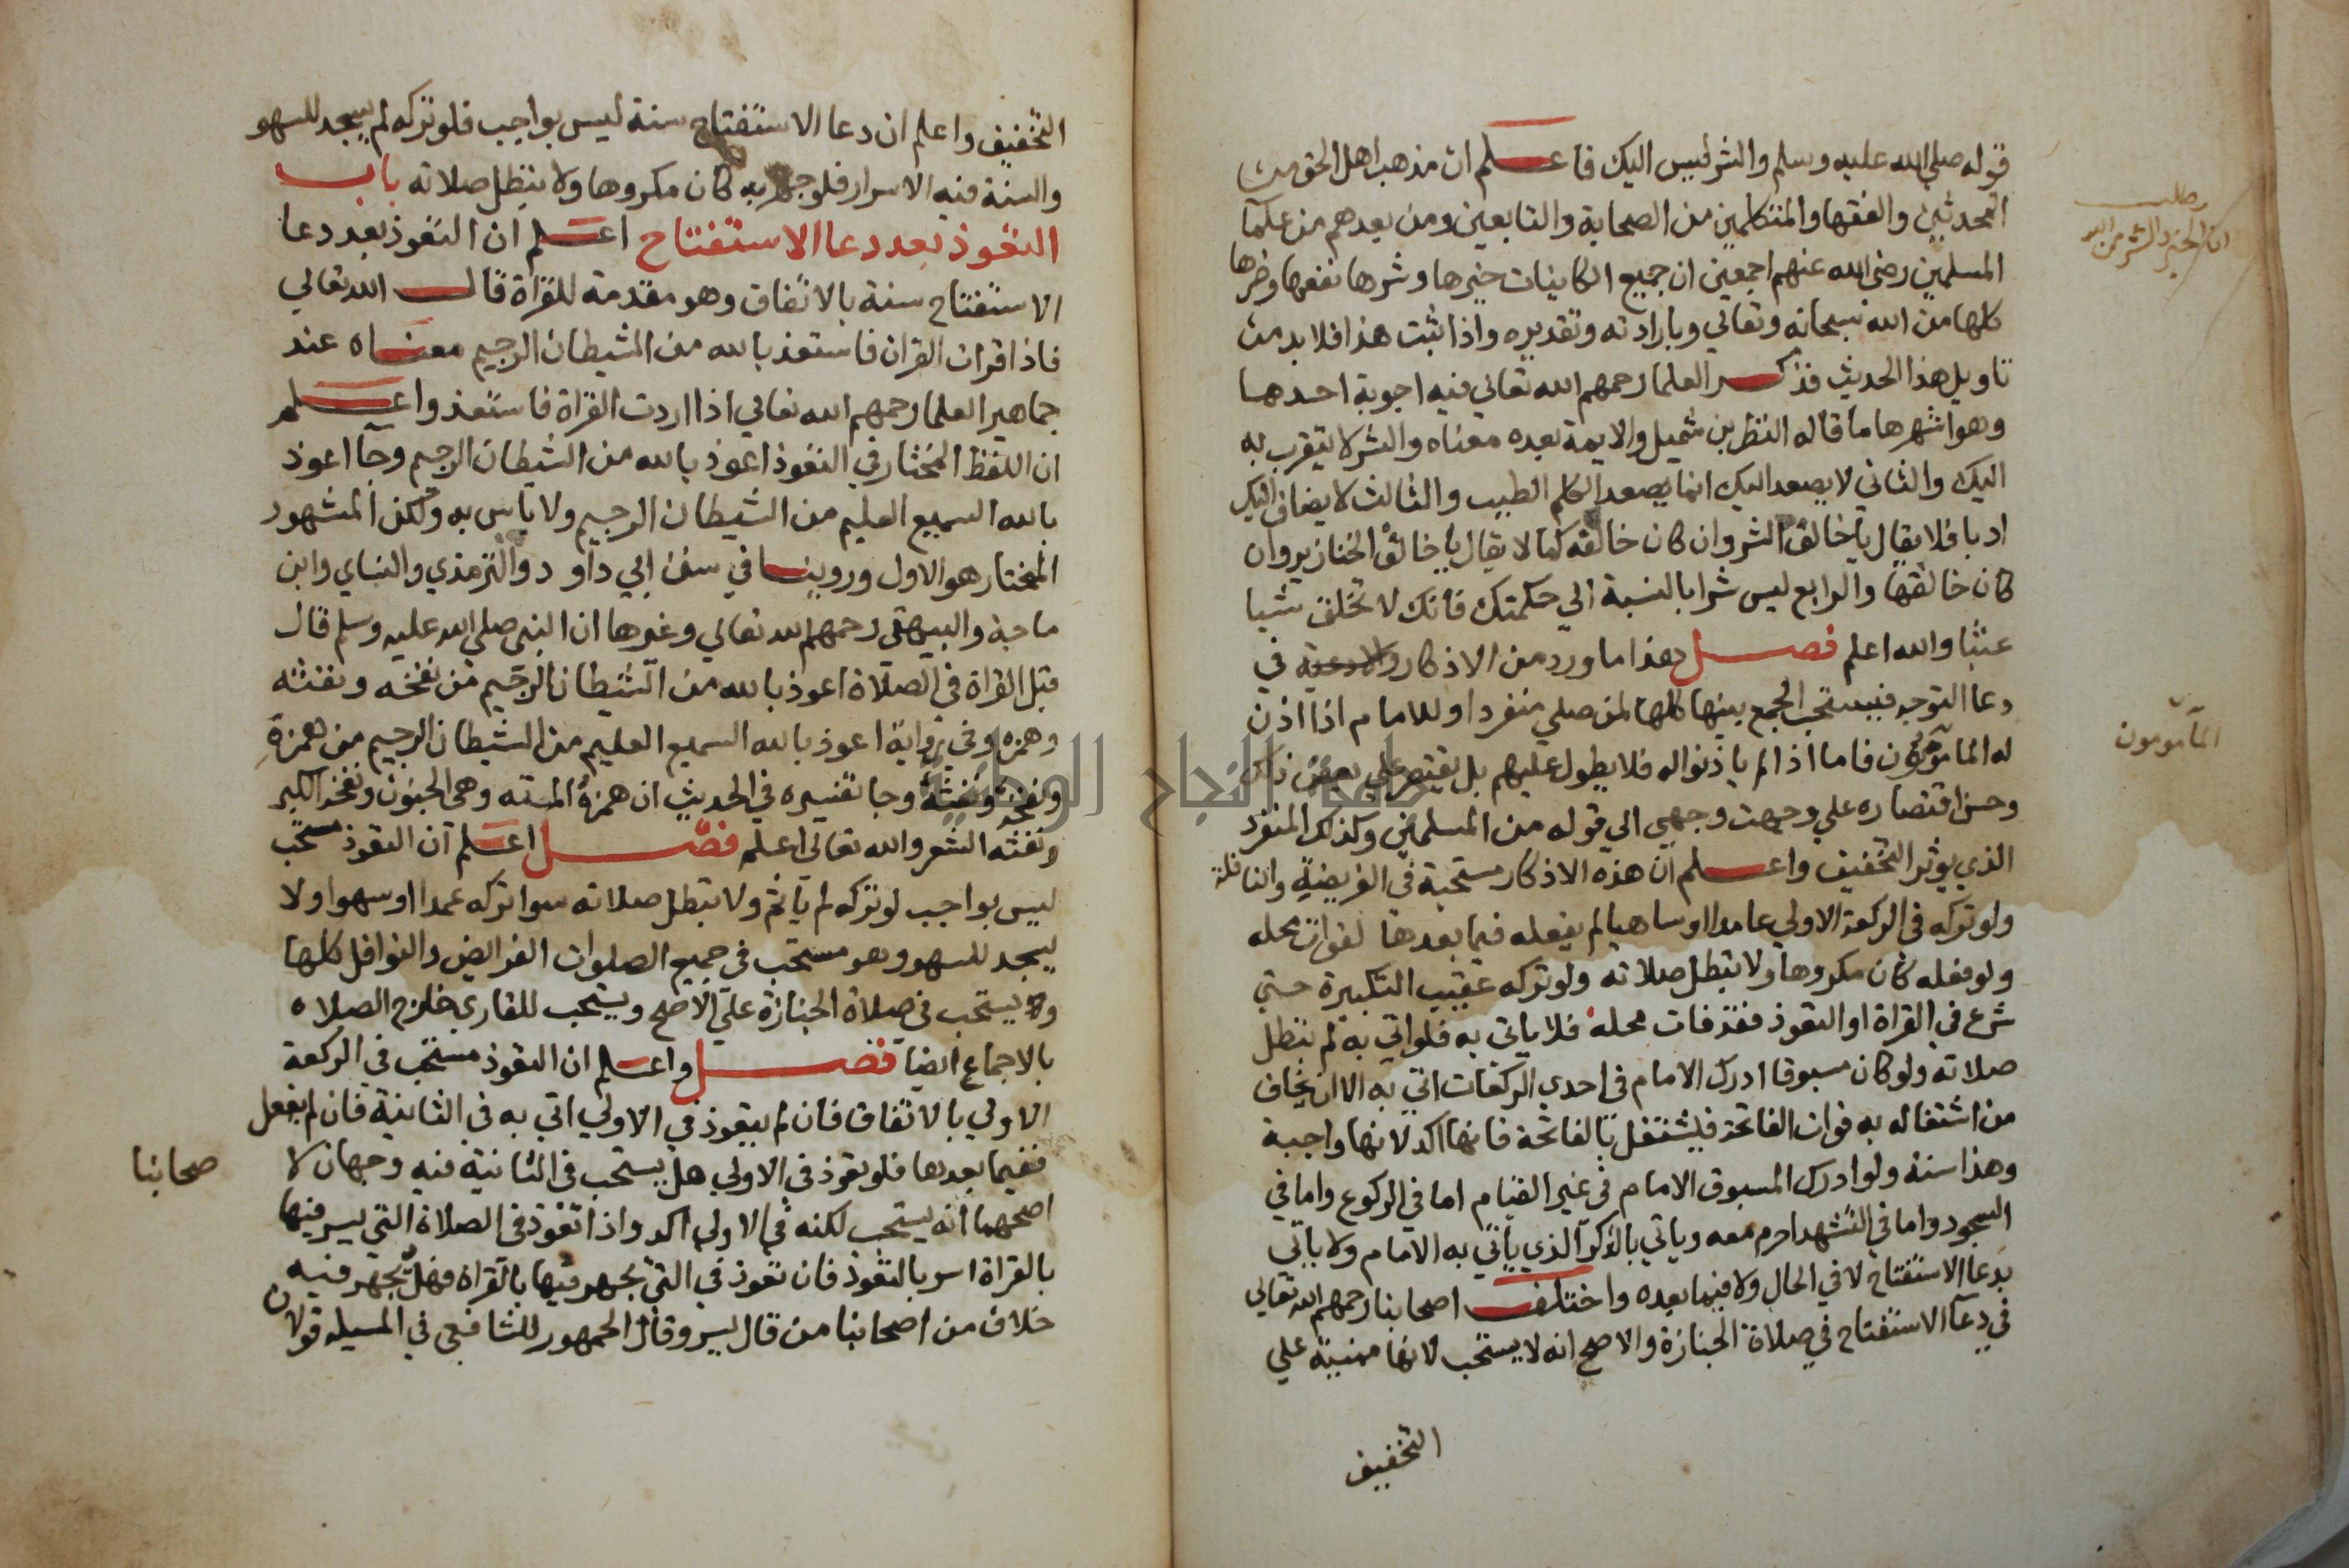 قوله صلي الله عليه وسلم والشر ليس اليك فاعلم ان مذهب اهل الحق من
المحدثين والفقها والمتكلمين من الصحابة والتابعين ومن بعدهم من علما
المسلمين رضي الله عنهم اجمعين ان جميع الكاينات خيرها وشرها نفعها وضرها
كلها من الله سبحانه وتعالي وبارادته وتقديره واذا ثبت هذا فلا بد من
تاويل هذا الحديث فذكر العلما رحمهم الله تعالي فيه اجوبة احدها
وهو اشهرها ما قاله النظر بن شميل والايمة بعده معناه والشر لا يتقرب به
اليك والثاني لا يصعد اليك انما يصعد الكلم الطيب والثالث لا يضاف اليك
ادبا فلا يقال يا خالق الشر وان كان خالقه كما لا يقال يا خالق الخنازير وان
كان خالقها والرابع ليس شرا بالنسبة الي حكمتك فانك لا تخلق شيا
عبثا والله اعلم فصل هذا ما ورد من الاذكار والادعية في
دعا التوجه فيستحب الجمع بينها كلها لمن صلي منفردا وللامام اذا اذن
له المامومون فاما اذا لم ياذنوا له فلا يطول عليهم بل يقتصر علي بعض ذلك
وحسن اقتصاره علي وجهت وجهي الي قوله من المسلمين وكذلك المنفرد
الذي يوثر التخفيف واعلم ان هذه الاذكار مستحبة في الفريضة والنافلة
ولو تركه في الركعة الاولي عامدا او ساهيا لم يفعله فيما بعدها لفوات محله
ولو فعله كان مكروها ولا تبطل صلاته ولو تركه عقيب التكبيرة حتي
شرع في القراة او التعوذ فقد فات محله فلا ياتي به فلو اتي به لم تبطل
صلاته ولو كان مسبوقا ادرك الامام في احدي الركعات اتي به الا ان يخاف
من اشتغاله به فوات الفاتحة فيشتغل بالفاتحة فانها اكد لانها واجبة
وهذا سنة ولو ادرك المسبوق الامام في غير القيام اما في الركوع واما في
السجود واما في التشهد احرم معه وياتي بالذكر الذي ياتي به الامام ولا ياتي
بدعا الاستفتاح لا في الحال ولا فيما بعده واختلف اصحابنا رحمهم الله تعالي
في دعا الاستفتاح في صلاة الجنازة والاصح انه لا يستحب لانها مبنية علي
التخفيف
مطلب
ان الخير والشر من الله
المامومون
التخفيف واعلم ان دعا الاستفتاح سنة ليس بواجب فلو تركه لم يسجد للسهو
والسنة فيه الاسرار فلو جهر به كان مكروها ولا تبطل صلاته باب
التعوذ بعد دعا الاستفتاح اعلم ان التعوذ بعد دعا
الاستفتاح سنة بالاتفاق وهو مقدمة للقراة قال الله تعالي
فاذا قرات القران فاستعذ بالله من الشيطان الرجيم معناه عند
جماهير العلما رحمهم الله تعالي اذا اردت القراة فاستعذ واعلم
ان اللفظ المختار في التعوذ اعوذ بالله من الشيطان الرجيم وجا اعوذ
بالله السميع العليم من الشيطان الرجيم ولا باس به ولكن المشهور
المختار هو الاول وروينا في سنن ابي داود والترمذي والنساي وابن
ماجة والبيهقي رحمهم الله تعالي وغيرها ان النبي صلي الله عليه وسلم قال
قبل القراة في الصلاة اعوذ بالله من الشيطان الرجيم من نفخه ونفثه
وهمزه وفي رواية اعوذ بالله السميع العليم من الشيطان الرجيم من همزه
ونفخه ونفثه وجا تفسيره في الحديث ان همزه الموته وهي الجنون ونفخه الكبر
ونفثه الشعر والله تعالي اعلم فصل اعلم ان التعوذ مستحب
ليس بواجب لو تركه لم ياثم ولا تبطل صلاته سوا تركه عمدا او سهوا ولا
يسجد للسهو وهو مستحب في جميع الصلوات الفرايض والنوافل كلها
ويستحب في صلاة الجنازة علي الاصح ويستحب للقاري خارج الصلاه
بالاجماع ايضا فصل واعلم ان التعوذ مستحب في الركعة
الاولي بالاتفاق فان لم يتعوذ في الاولي اتي به في الثانية فان لم يفعل
ففيما بعدها فلو تعوذ في الاولي هل يستحب في الثانية فيه وجهان لا
اصحهما انه يستحب لكنه في الاولي اكد واذا تعوذ في الصلاة التي يسر فيها
بالقراة اسر بالتعوذ فان تعوذ في التي يجهر فيها بالقراة فهل يجهر فيه
خلاف من اصحابنا من قال يسر وقال الجمهور للشافعي في المسيله قولان
صحابنا